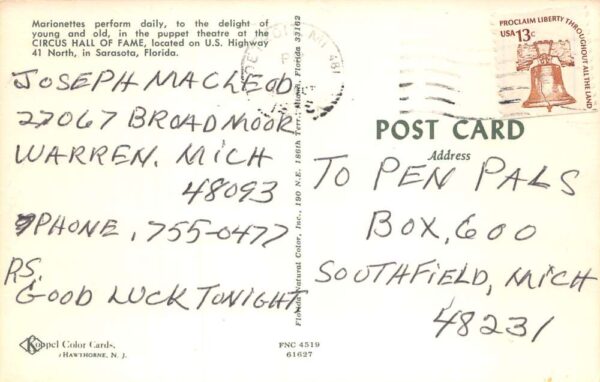 Marionettes perform daily, to the delight of
young and old, in the puppet theatre at the
CIRCUS HALL OF FAME, located on U.S. Highway
41 North, in Sarasota, Florida.
JOSEPH MACLEOD
27067 BROADMOOR
WARREN. MICH
48093
PHONE, 755-0477
P.S.
GOOD LUCK TONIGHT
Koppel Color Cards.
HAWTHORNE, N. J.
Florida Natural Color, Inc., 190 N.E. 186th Terr., Miami, Florida 33162
FNC 4519
61627
PROCLAIM LIBERTY THROUGHOUT ALL THE LAND
USA 13c
481
POST CARD
Address
TO PEN PALS
BOX, 600
SOUTHFIELD, MICH
48231